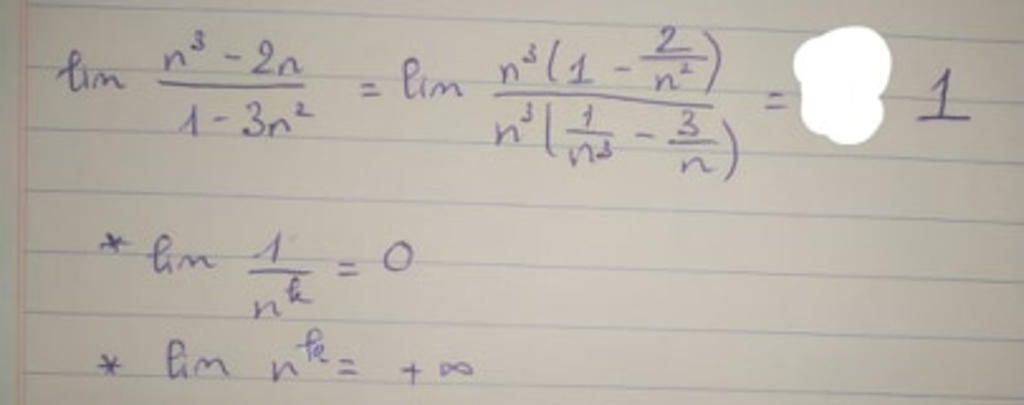 lim (n³ - 2n)/(1 - 3n²) = lim (n³(1 - 2/n²))/(n³(1/n³ - 3/n)) = 1
* lim 1/n^k = 0
* lim n^k = +∞